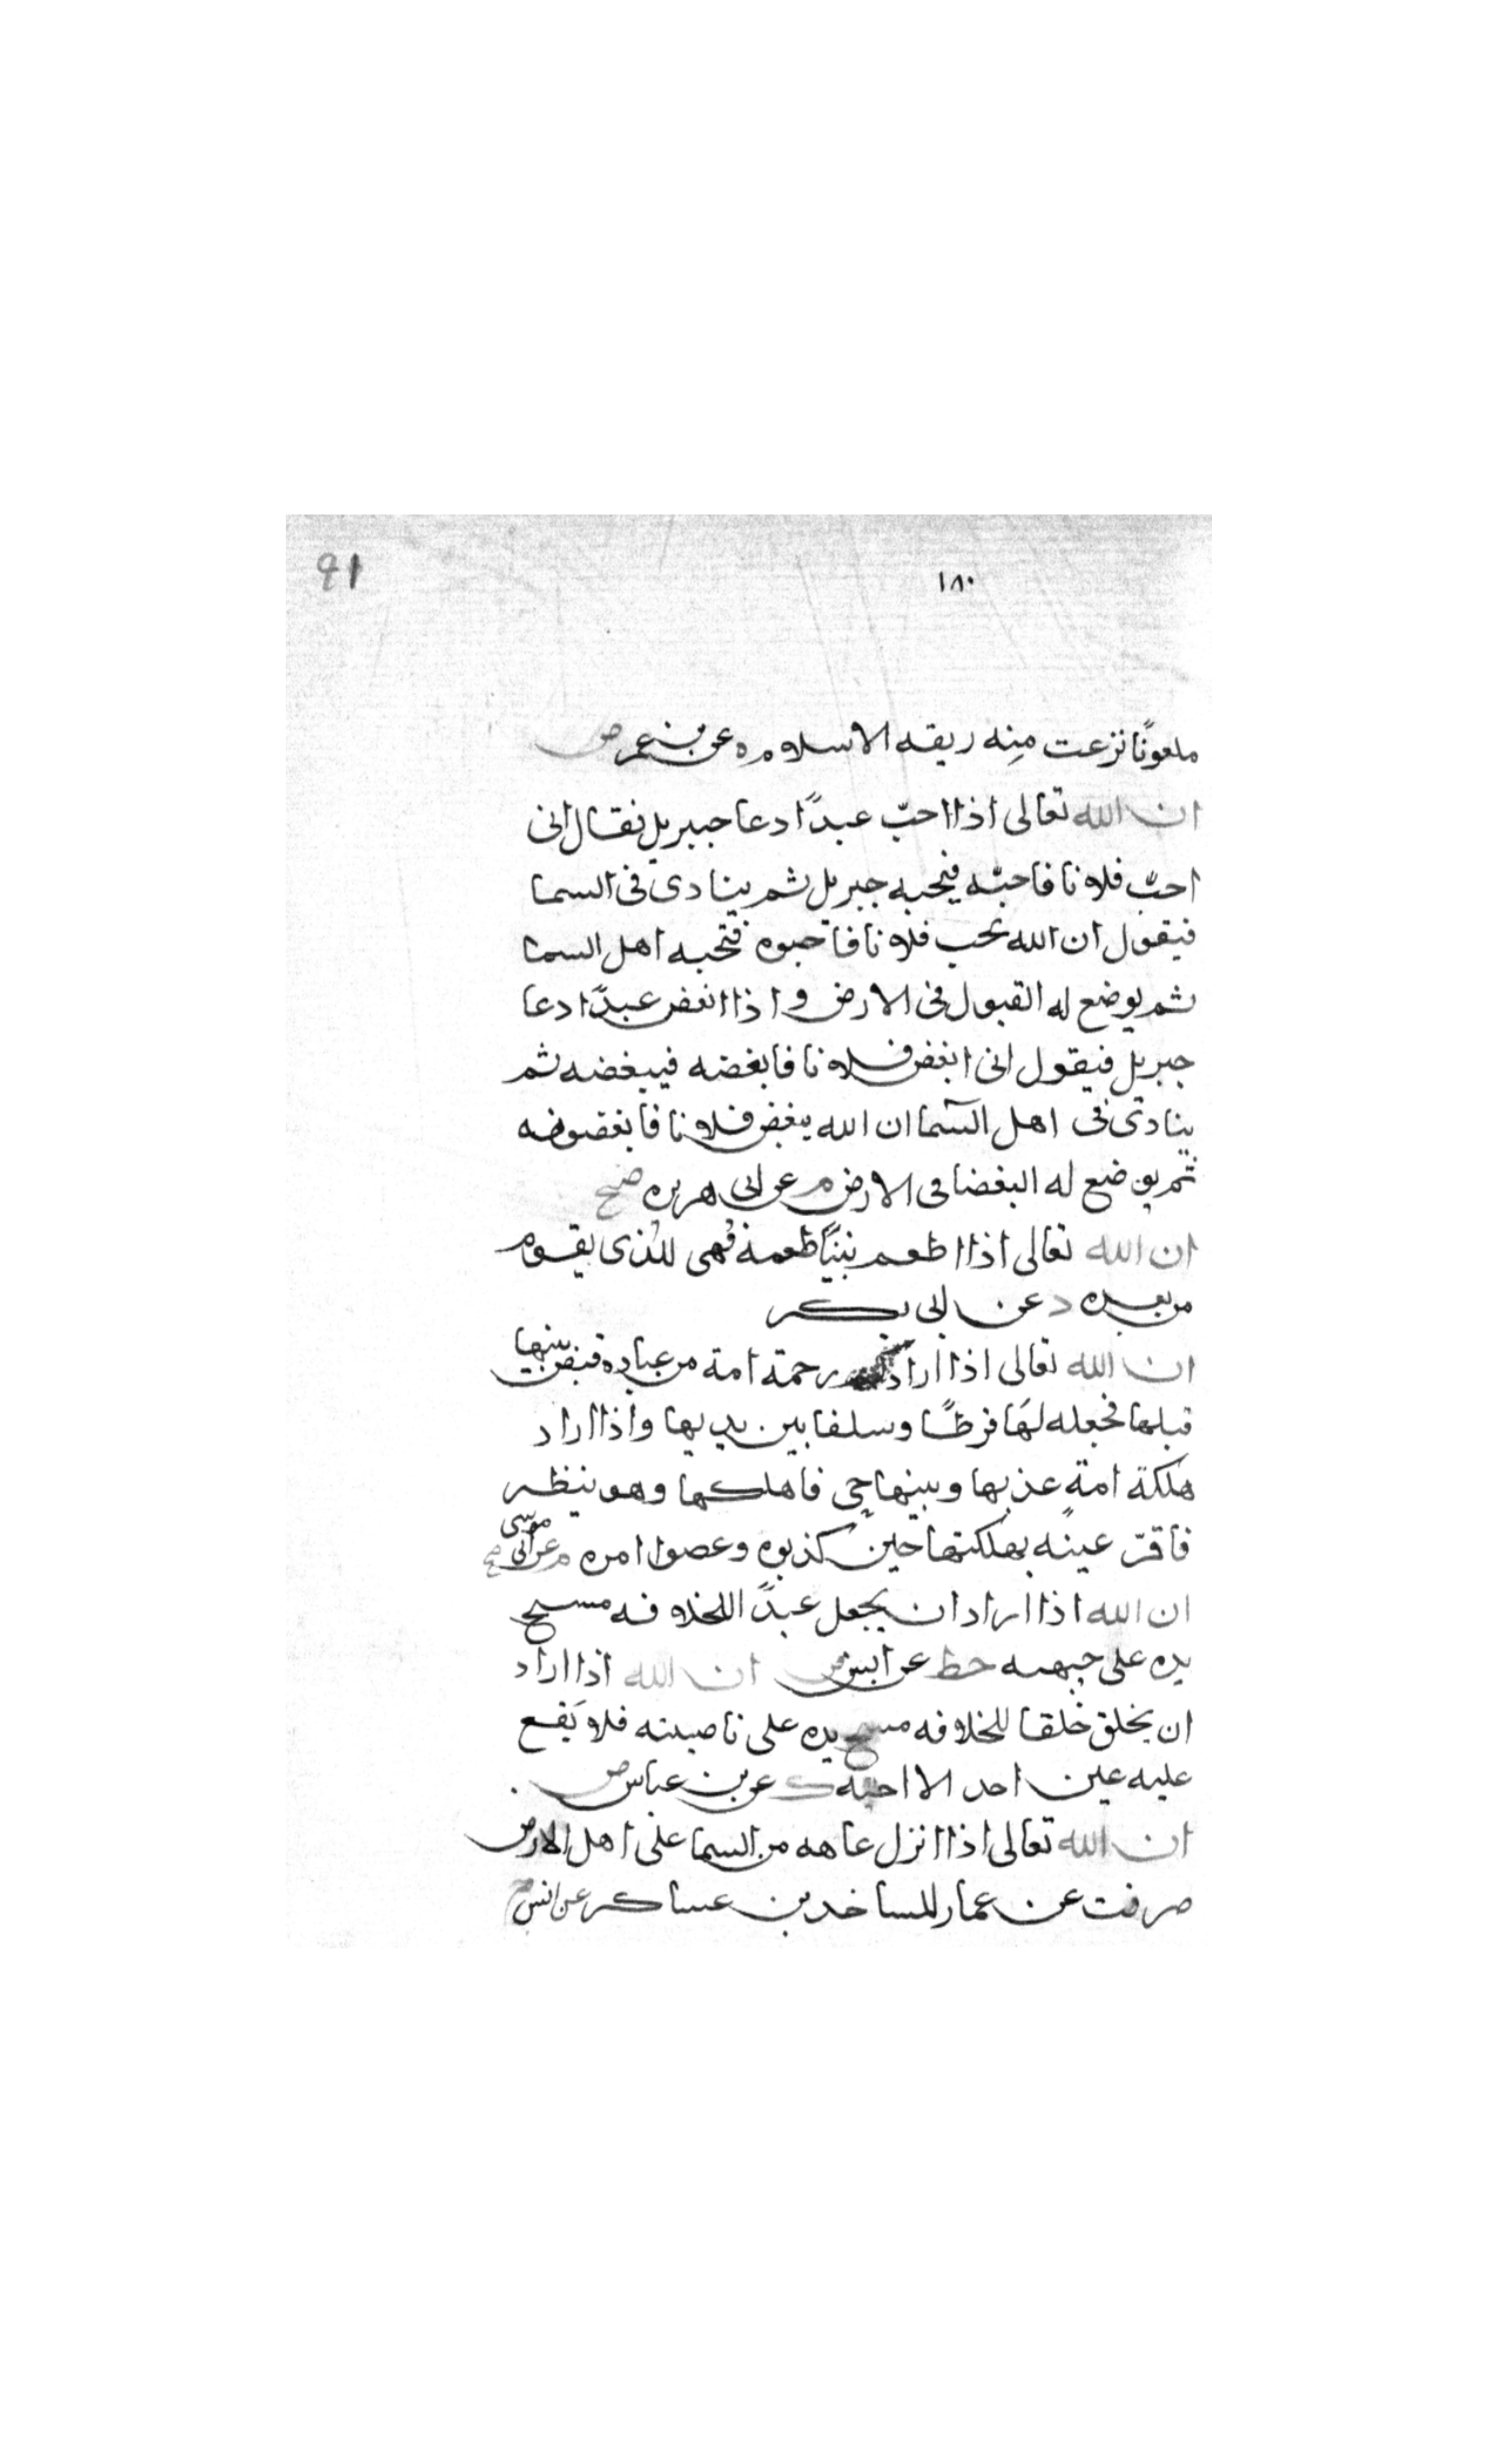 ٩١
١٨٠
ملعونًا نزعت مِنه ربقه الاسلام ه عن بن عمر ض
ان الله تعالى اذا احبّ عبدًا دعا جبريل فقال انى
احبّ فلانا فاحبّه فيحبه جبريل ثم ينادى فى السما
فيقول ان الله يحب فلانا فاحبوه فتحبه اهل السما
ثم يوضع له القبول فى الارض واذا ابغض عبدًا دعا
جبريل فيقول انى ابغض فلانا فابغضه فيبغضه ثم
ينادى فى اهل السما ان الله يبغض فلانا فابغضوه
ثم يوضع له البغضا فى الارض م عن ابى هريره صح
ان الله تعالى اذا اطعم نبيًا طعمة فهى للذى يقوم
من بعده د عن ابى بكر
ان الله تعالى اذا اراد رحمة امة من عباده قبض نبيها
قبلها فجعله لهَا فرطًا وسلفا بين يديها واذا اراد
هلكة امةٍ عذبها ونبيها حي فاهلكها وهو ينظر
فاقرّ عينَه بهلكتها حين كذبوه وعصوا امره م عن ابى موسى صح
ان الله اذا اراد ان يجعل عبدًا للخلافه مسح
يده على جبهته خط عن انس ض ان الله اذا اراد
ان يخلق خلقا للخلافه مسح يده على ناصيته فلا يَقع
عليه عين احد الا احبته ك عن بن عباس ض
ان الله تعالى اذا انزل عاهه من السما على اهل الارض
صرفت عن عمار المساجد بن عساكر عن انس